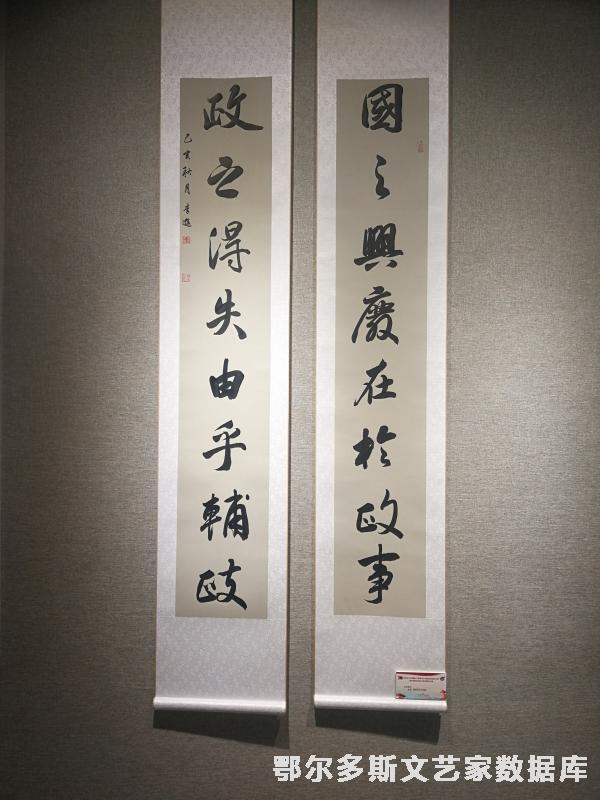 國之興廢在於政事
政之得失由乎輔
己亥秋月
鄂尔多斯文艺家数据库